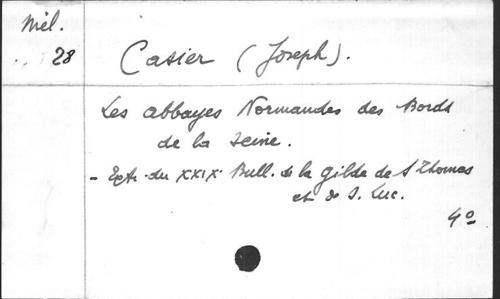 Mél.
.. 28
Casier (Joseph).
Les abbayes Normandes des Bords
de la Seine.
- Extr. du XXIX. Bull. de la Gilde de S Thomas
et de S. Luc.
4º